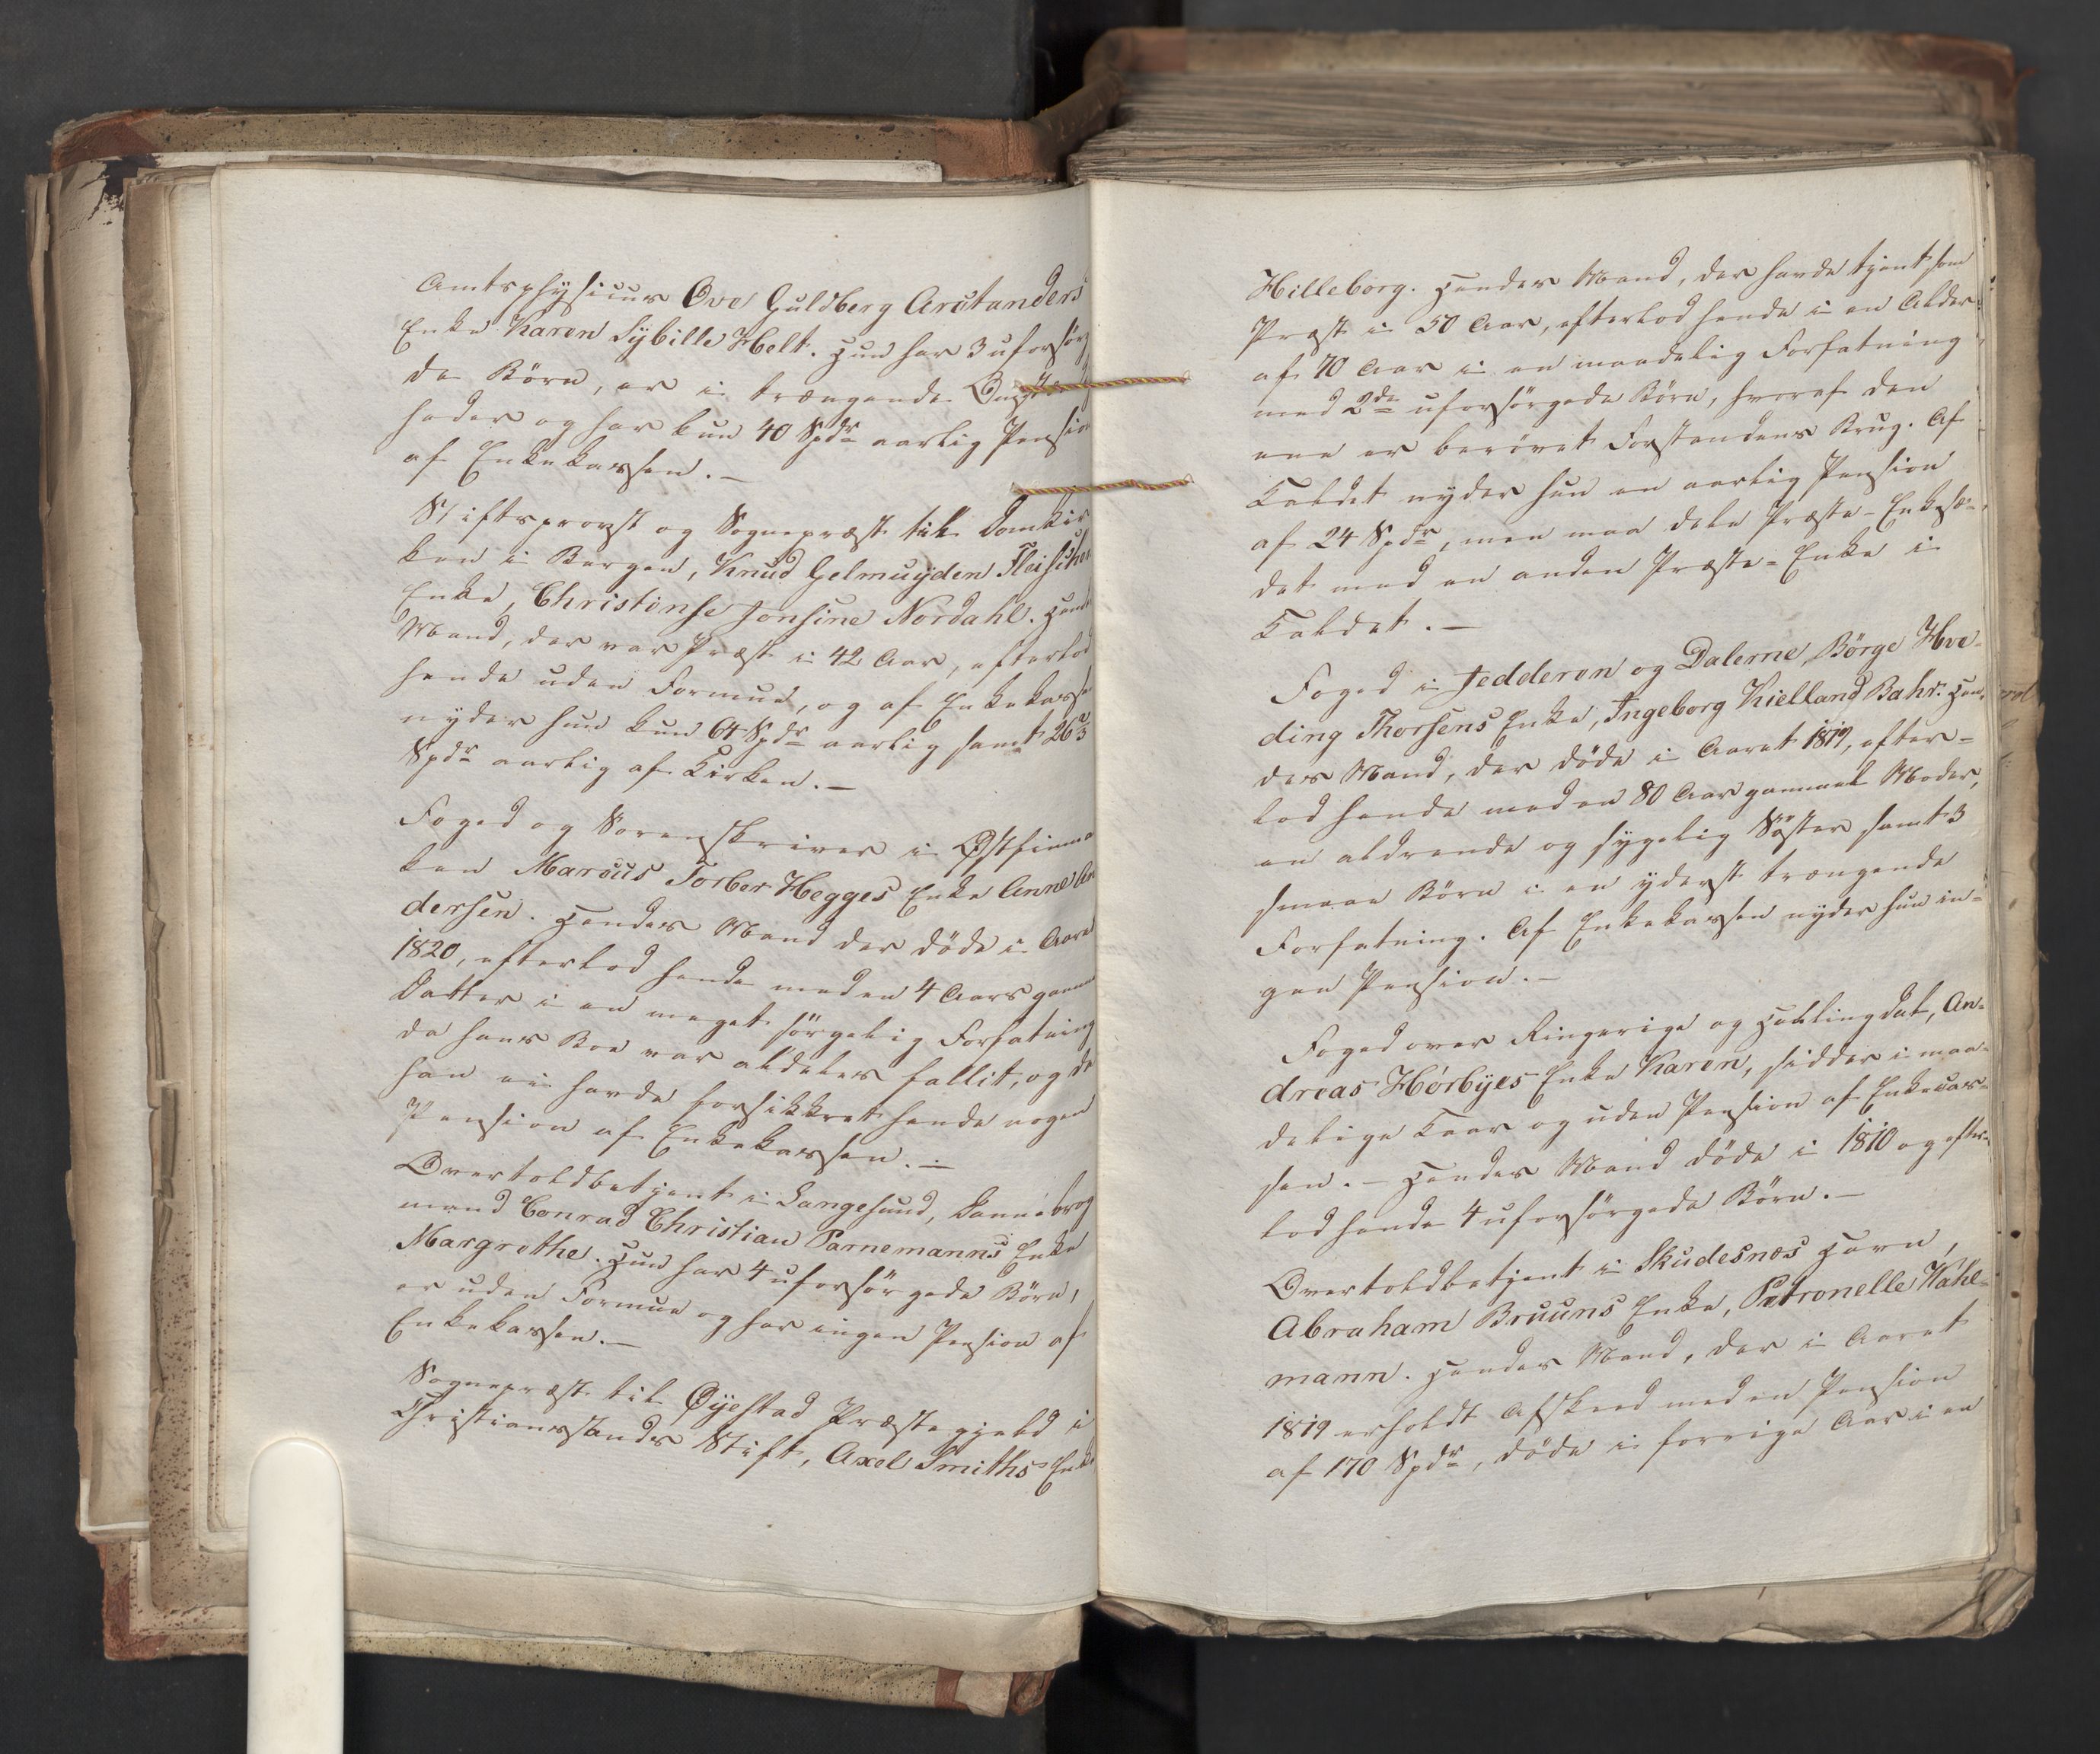 Amtsphysicus Ove Guldberg Arctanders
Enke Karen Sybille Helt. Hun har 3 uforsörg
de Börn, er i trængende Omstæn
heder og har kun 40 Spdr aarlig Pensio
af Enkekassen. —
Stiftsprovst og Sognepræst til Domkir
ken i Bergen, Knud Gelmuyden Fleischer
Enke, Christinse Jonsine Nordahl. Hendes
Mand, der var Præst i 42 Aar, efterlod
hende uden Formue, og af Enkekasse
nyder hun kun 64 Spdr aarlig samt 26 2/3
Spdr aarlig af Kirken. —
Foged og Sorenskriver i Østfinma
ken Marcus Torber Hegges Enke Anne An
dersen. Hendes Mand der döde i Aaret
1820, efterlod hende med en 4 Aars gamm
Datter i en meget sörgelig Forfatning
da hans Boe var aldeles fallit, og da
han ei havde forsikkret hende nogen
Pension af Enkekassen. —
Overtoldbetjent i Langesund, Dannebrog
mand Conrad Christian Parnemanns Enke
Margrethe. Hun har 4 uforsörgede Börn,
er uden Formue og har ingen Pension af
Enkekassen. —
Sognepræst til Øyestad Præstegjeld i
Christianssands Stift, Axel Smiths Enke
Hilleborg. Hendes Mand, der havde tjent som
Præst i 50 Aar, efterlod hende i en Alder
af 70 Aar i en maadelig Forfatning
med 2de uforsörgede Börn, hvoraf den
ene er berövet Forstandens Brug. Af
Kaldet nyder hun en aarlig Pension
af 24 Spdr, men maa dele Præste-Enkesæ-
det med en anden Præste-Enke i
Kaldet. —
Foged i Jedderen og Dalerne, Börge Hve-
ding Thorsens Enke, Ingeborg Kielland Bahr. Hen-
des Mand, der döde i Aaret 1819, efter-
lod hende med en 80 Aar gammel Moder,
en aldrende og sygelig Söster samt 3
smaae Börn i en yderst trængende
Forfatning. Af Enkekassen nyder hun in-
gen Pension. —
Foged over Ringerige og Hallingdal, An-
dreas Hörbyes Enke Karen, sidder i maa-
delige Kaar og uden Pension af Enkecas-
sen. — Hendes Mand döde i 1810 og efter
lod hende 4 uforsörgede Börn. —
Overtoldbetjent i Skudesnæs Havn,
Abraham Bruuns Enke, Petronelle Wahl-
mann. Hendes Mand, der i Aaret
1819 erholdt Afskeed med en Pension
af 170 Spdr, döde i forrige Aar i en